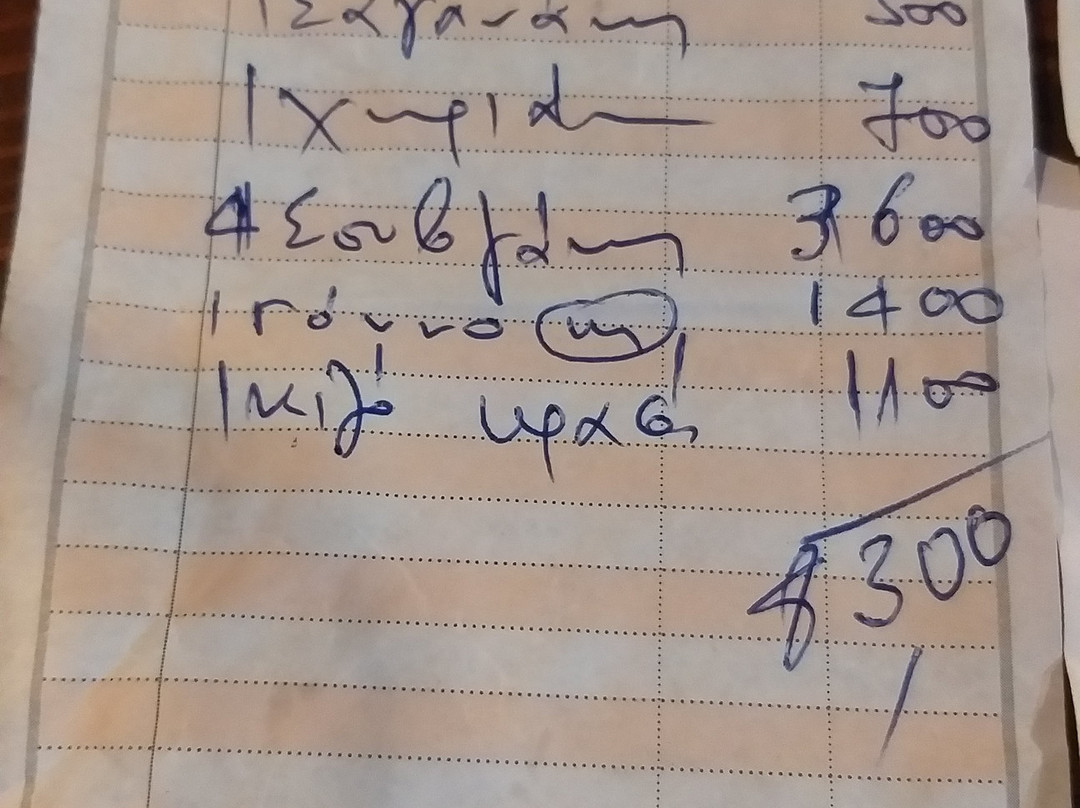 1 Σαγανάκη 500
1 Χωριάτ 700
4 Σουβλάκη 3600
1 τόννο 1400
1 κιλό κρασί 1100
8300